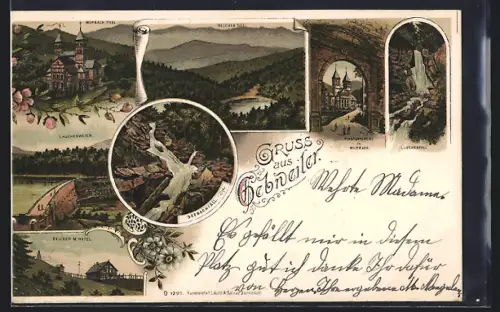 MURBACH THAL
BELCHEN SEE.
LAUCHENWEIER.
SEEBACHFALL
MURBACH.
LAUCHENFALL
BELCHEN M. HOTEL
Gruss
aus
Gebweiler.
Wehrte Madame
Es gefällt mir in diesem
Platz gut ich danke Ihr dafür
von Herzen, Ihre ergebene M.